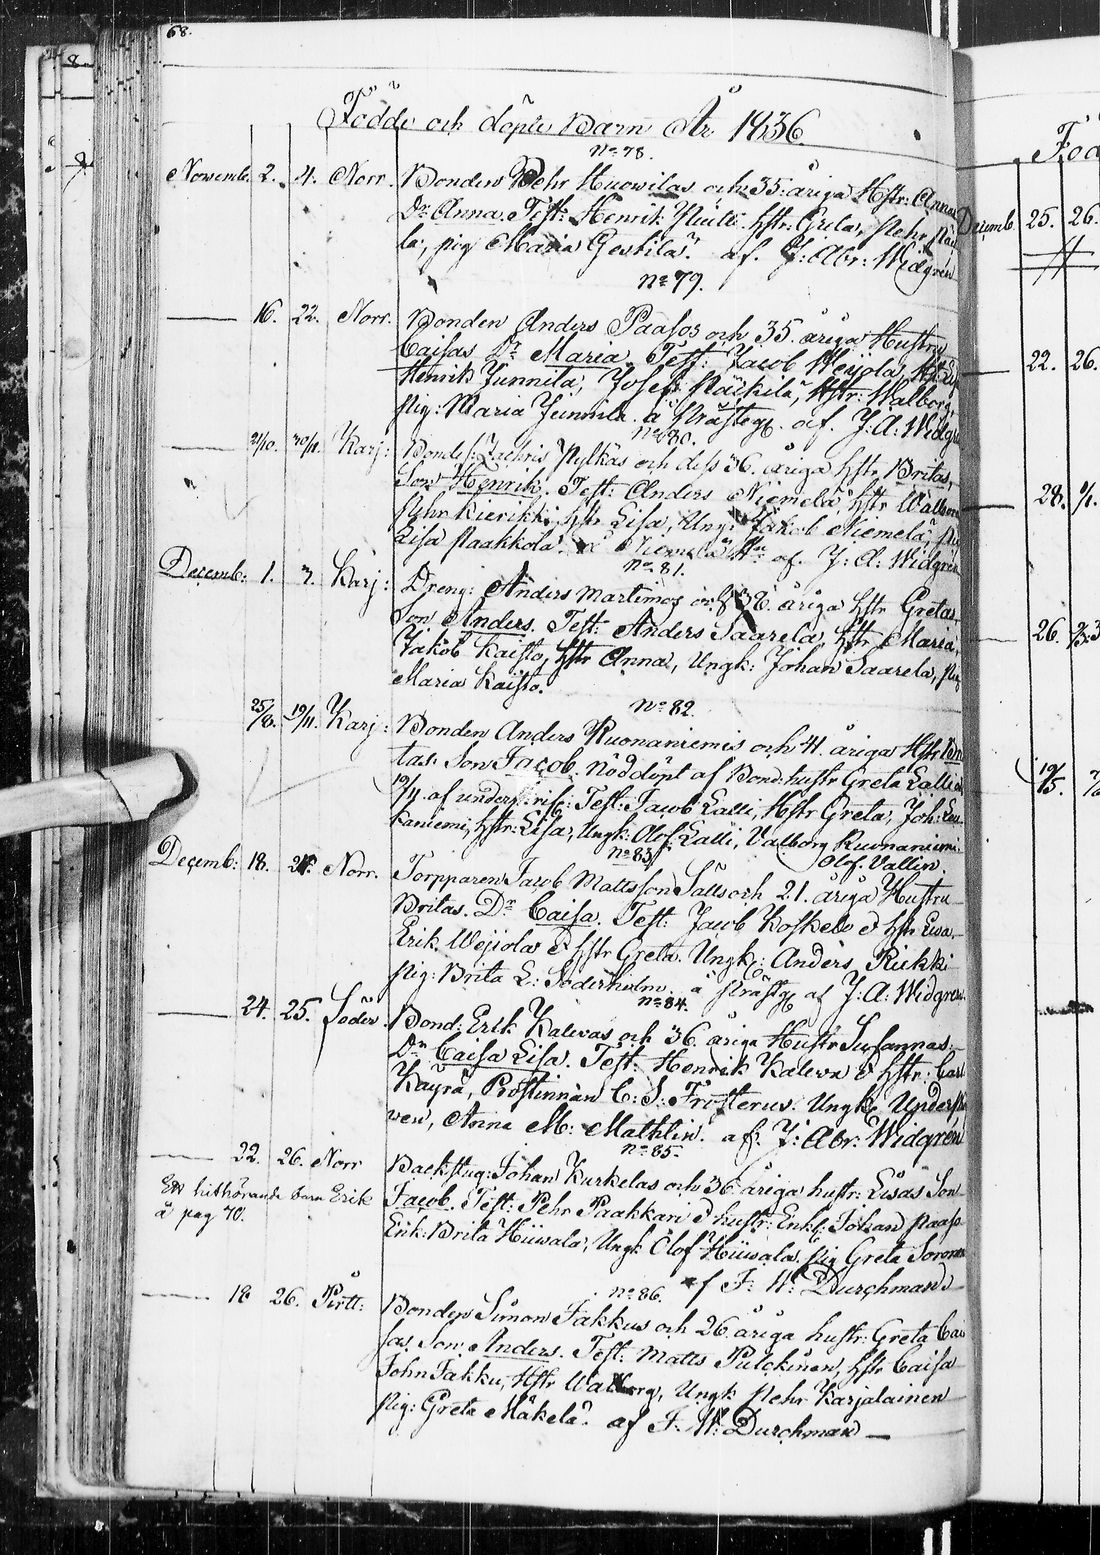 68.
Födde och döpte Barn År 1836.
No 78.
Novemb. 2. 4. Norr. Bonden Pehr Huowilas och 35: åriga Hstr: Annas
Dr Anna. Test: Henrik hstr: Greta, Pehr
la, pig Maria af. J: Abr: Widgrén
No 79.
16. 22. Norr. Bonden Anders Paasos och 35. åriga Hustru
Caisas Dr Maria. Test: Jacob Weijola,
Henrik Junnila, Josep Näckilä, Hstr: Walborg,
pig: Maria Junnila. å prästeg. af. J: A: Widgr
No 80.
21/10. 30/11. Karj: Bonde s: Zachris Pylkäs och dess 36. åriga hstr Britas,
Son Henrik. Test: Anders Niemelä hstr Walborg
Pehr Kierikki, hstr Lisa, Ung: Jakob Niemelä,
Lisa Paakkola. å Niemelä af. J: A: Widgrén
No 81.
Decemb: 1. 7. Karj: Dreng: Anders Martimos och 38. åriga hstr Gretas,
Son Anders. Test: Anders Saarela, hstr Maria,
Jakob Kaisto, hstr Anna, Ungk: Johan Saarela, pig
Maria Kaisto.
No 82.
25/8. 19/11. Karj: Bonden Anders Ruonaniemis och 41. åriga Hstr
tas. Son Jacob. Nöddöpt af Bond: hustr Greta Lalli d
19/11 af Test: Jacob Lalli, Hstr Greta, Joh: Leu
kaniemi, hstr: Lisa, Ungk: Olof Lalli, Valborg Ruonaniemi
Olof Vallin.
No 83
Decemb: 18. Norr. Torpparen Jacob Mattsson Sälls och 21 åriga Hustru
Britas. Dr Caisa. Test: Jacob Koskelo & hstr Lisa.
Erik Wejjola & hstr Greta. Ungk: Anders Riekki
pig: Brita L: Söderholm. å prästg af J: A: Widgren
No 84.
24. 25. Söder. Bond: Erik Kalevas och 36. åriga Hustr Susannas.
Dr Caisa Lisa. Test: Henrik Kaleva & hstr: Cais
Käyrä, Prostinnan C: S: Frosterus. Ungk:
ven, Anna M: Mathlin. af. J: Abr: Widgren
No 85.
22. 26. Norr Backstug: Johan Kurkelas och 36. åriga hustr: Lisas Son
Ett hithörande barn Erik
å pag 70.
Jacob. Test: Pehr Paakkari & hustr: Enkl: Johan Paaso
Enk: Brita Hiiwala, Ungk Olof Hiiwala. pig Greta Soronen
af F: W: Durchman
No 86.
18 26. Pirtt: Bonden Simon Jakkus och 26 åriga hustr: Greta Cai
sas. Son Anders. Test: Matts Pulckinen, hstr Caisa
John Jakku, Hstr Walborg, Ungk Pehr Karjalainen
pig: Greta Mäkelä. af F. W: Durchman
Decemb 25. 26.
22. 26.
28.
26.